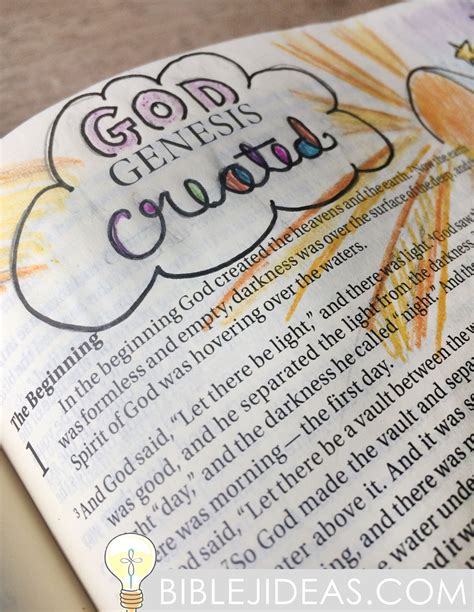 GOD
GENESIS
Created
The Beginning
1 In the beginning God created the heavens and the earth. ²Now the earth
was formless and empty, darkness was over the surface of the deep, and
Spirit of God was hovering over the waters.
³And God said, “Let there be light,” and there was light. ⁴God sa
was good, and he separated the light from the darkness
ght “day,” and the darkness he called “night.” And
re was morning—the first day.
d said, “Let there be a vault between the
So God made the vault and sepa
ater above it. And it was
ng, and there was
water unde
d it w
BIBLEJIDEAS.COM